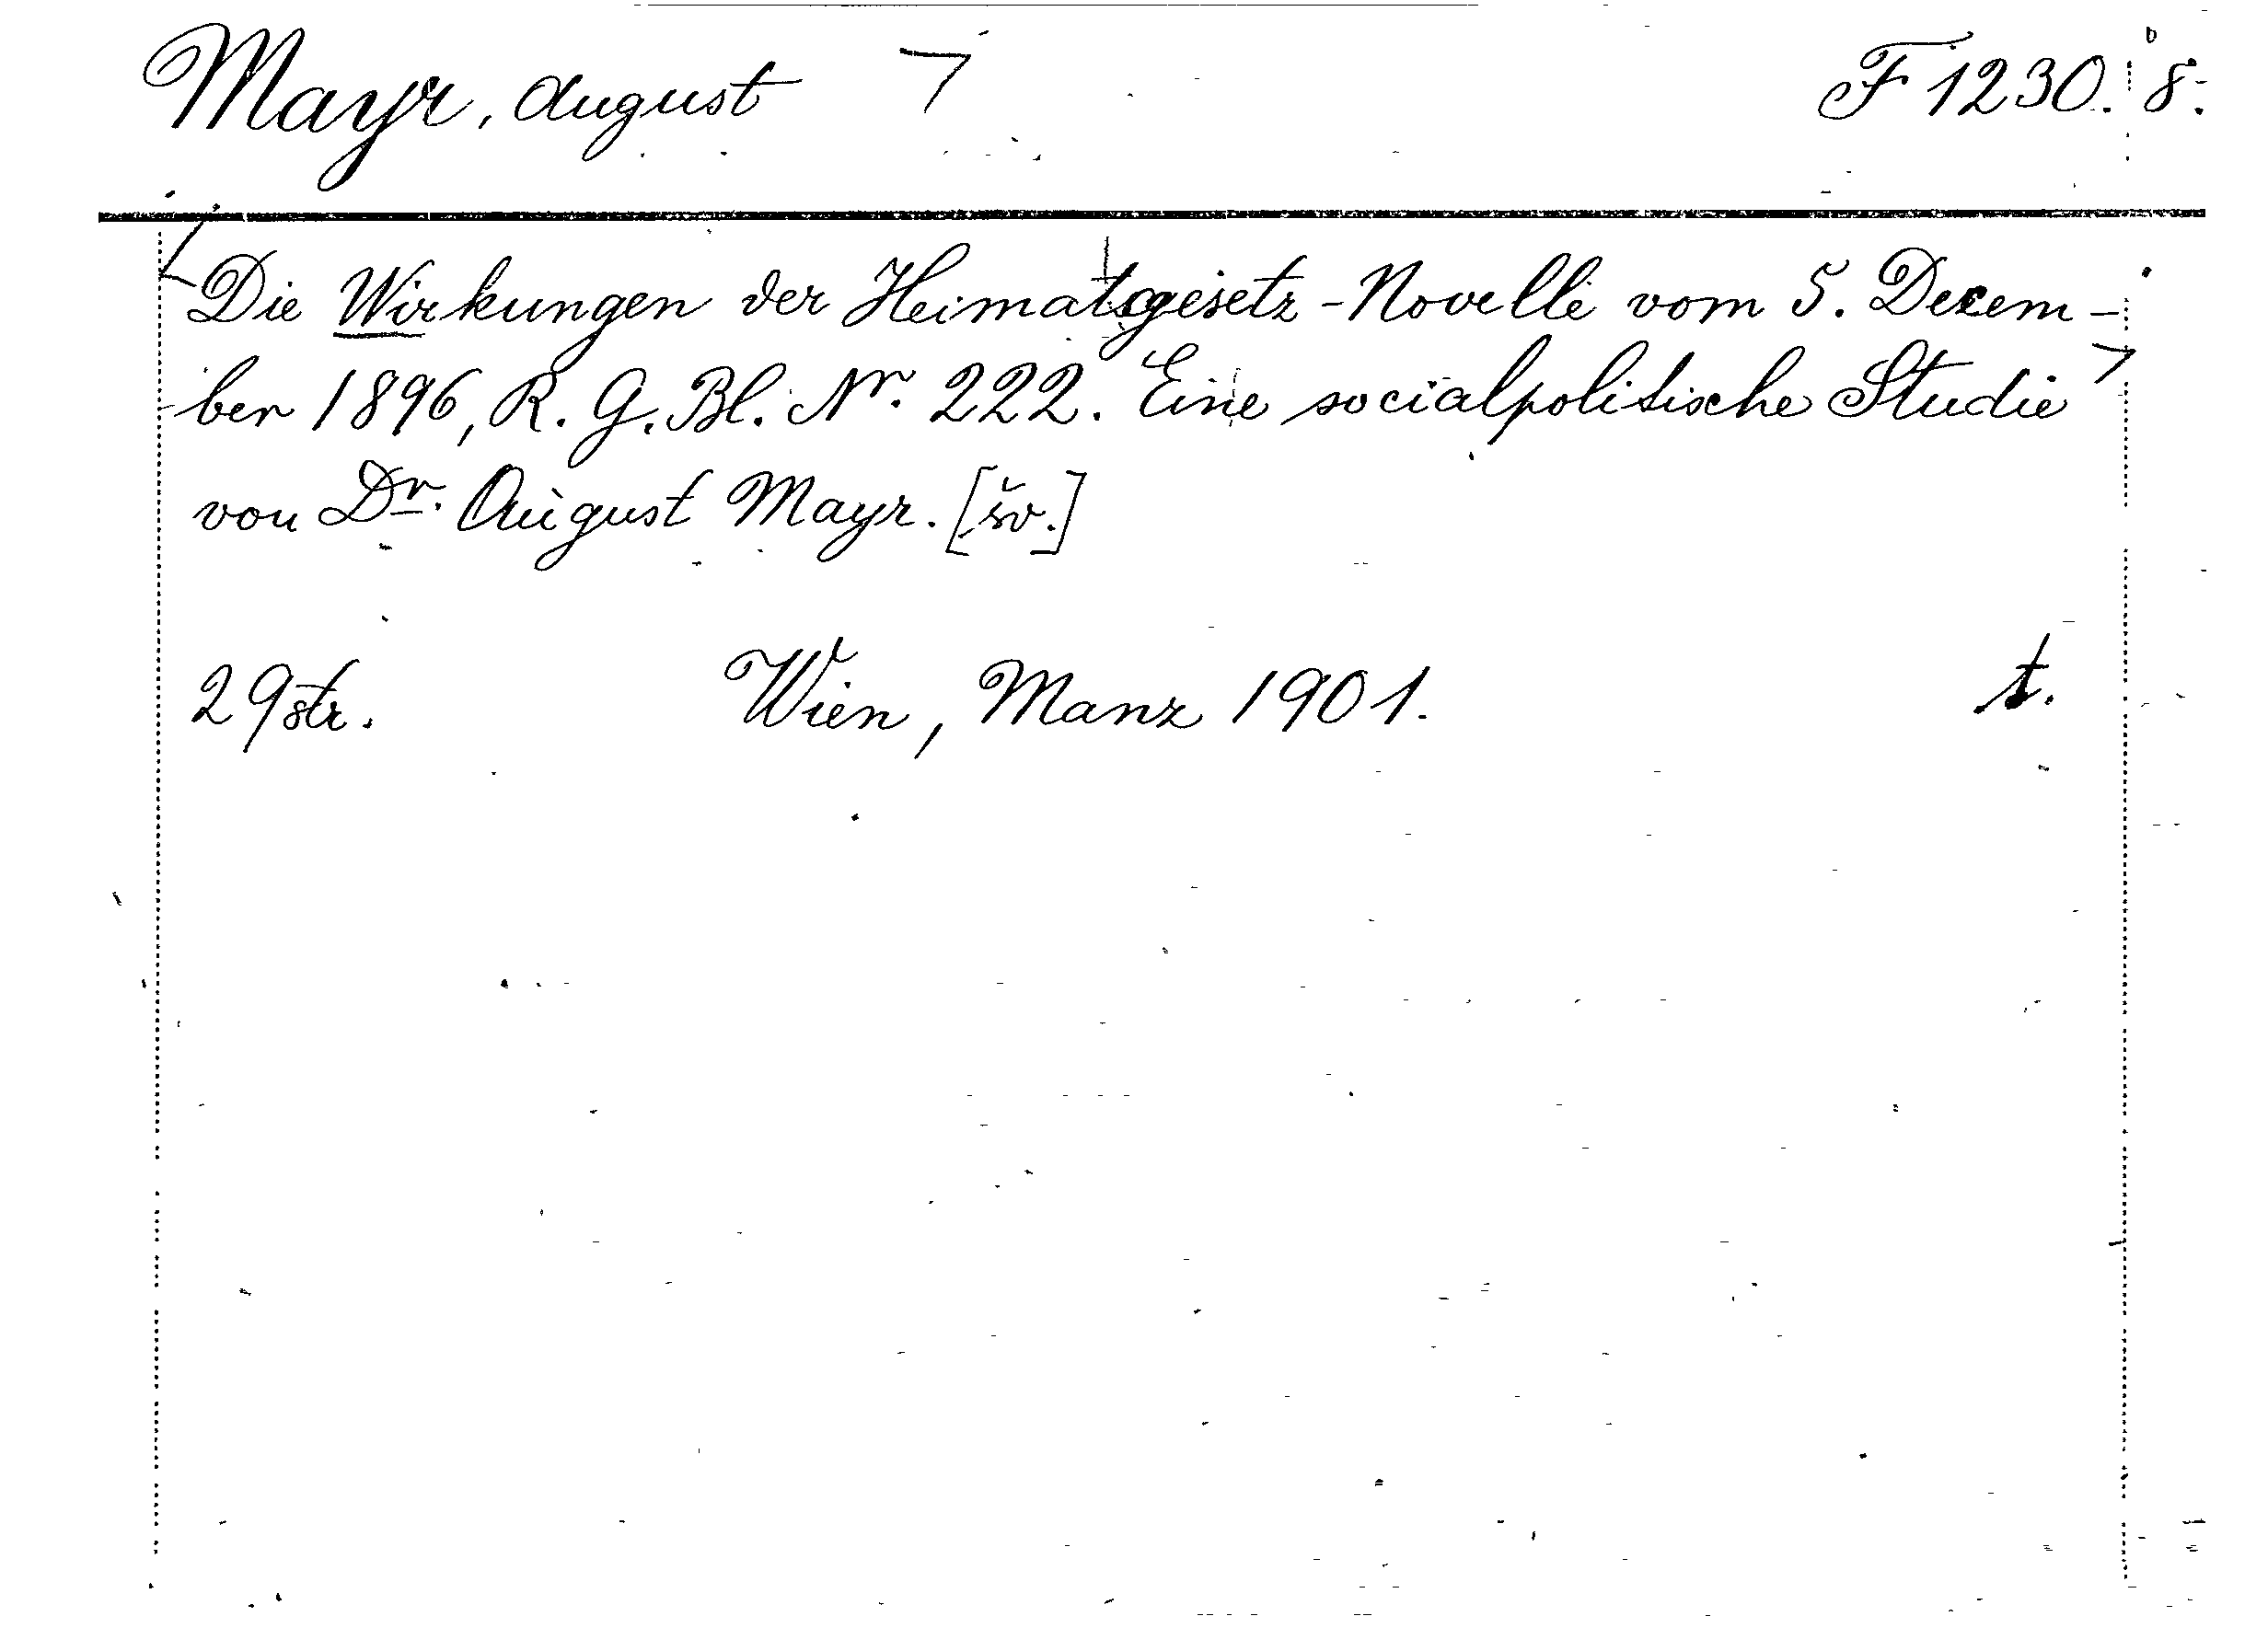 Mayr, August F 1230. 8.
Die Wirkungen der Heimatsgesetz-Novelle vom 5. Dezem-
ber 1896, R. G. Bl. Nr. 222. Eine socialpolitische Studie
von Dr. August Mayr. [šv.]
29 str. Wien, Manz 1901. t.